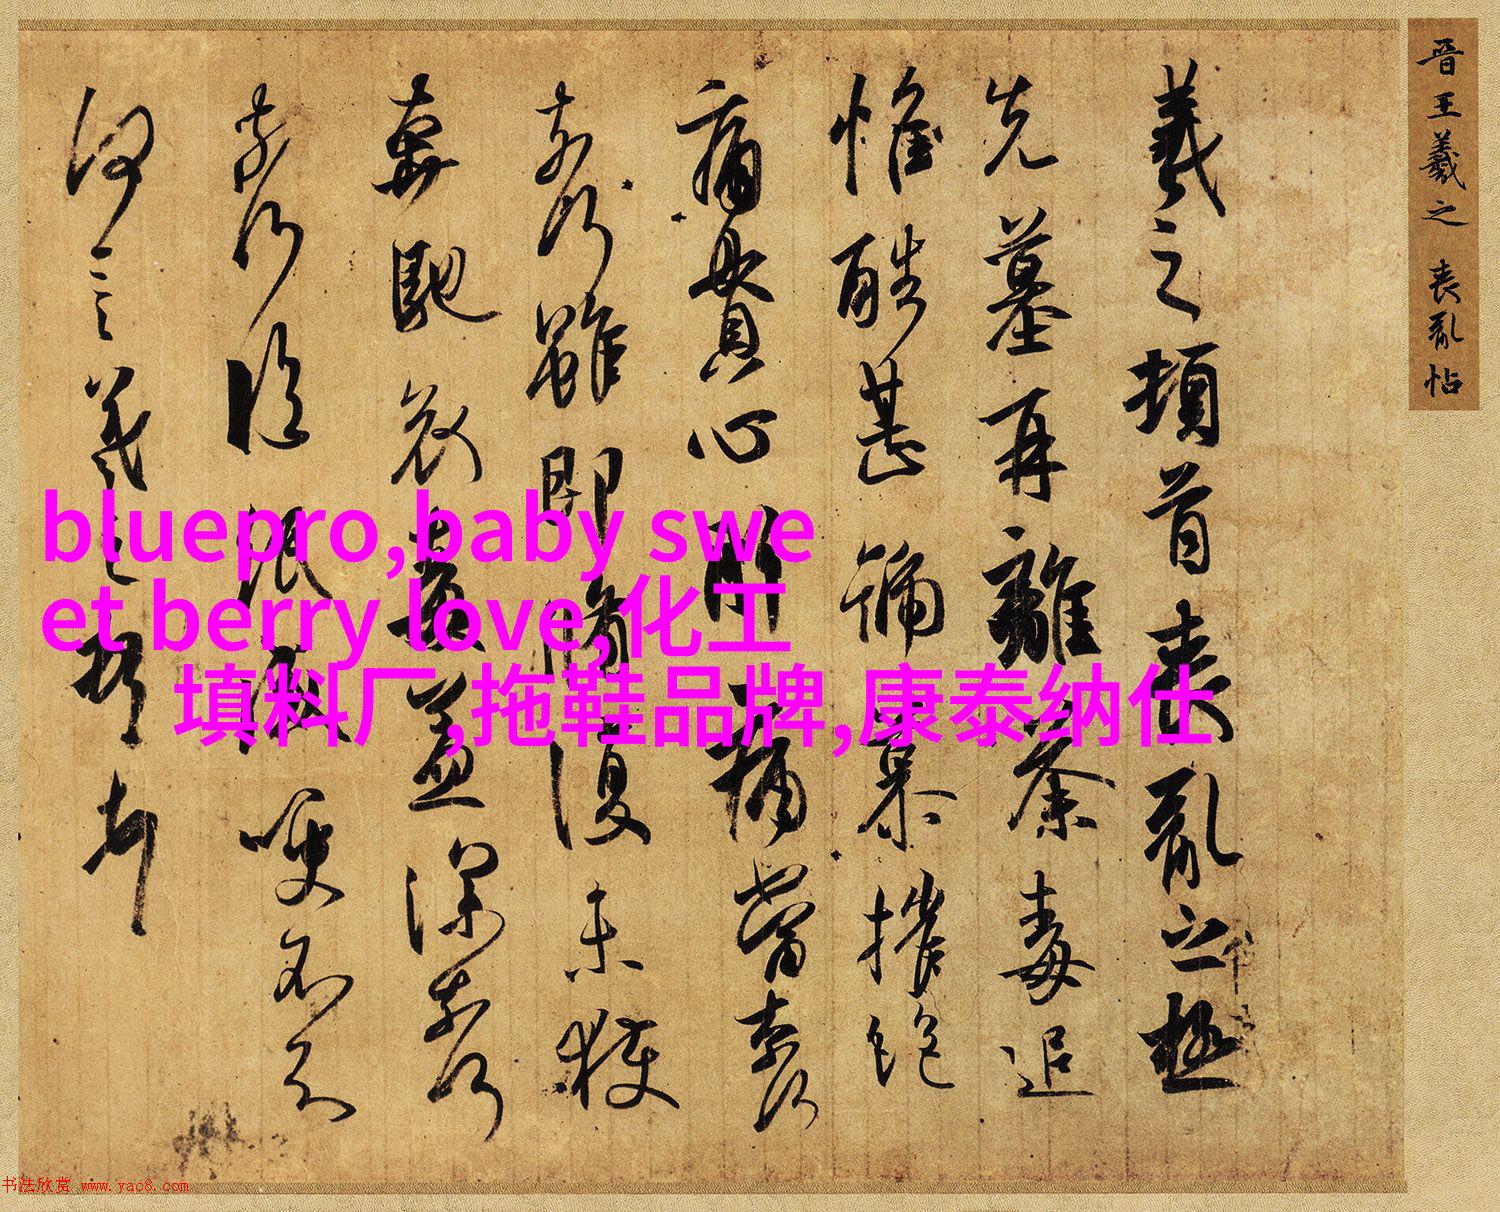 晋王羲之 喪亂帖
羲之頓首喪亂之極
先墓再離荼毒追
惟酷甚號慕摧絕
痛貫心肝痛當奈何
奈何雖即脩復未獲
奔馳哀毒益深奈何
奈何臨紙感哽不知
何言羲之頓首
bluepro,baby swe
et berry love,化工
填料厂,拖鞋品牌,康泰纳仕
书法欣赏 www.yac8.com